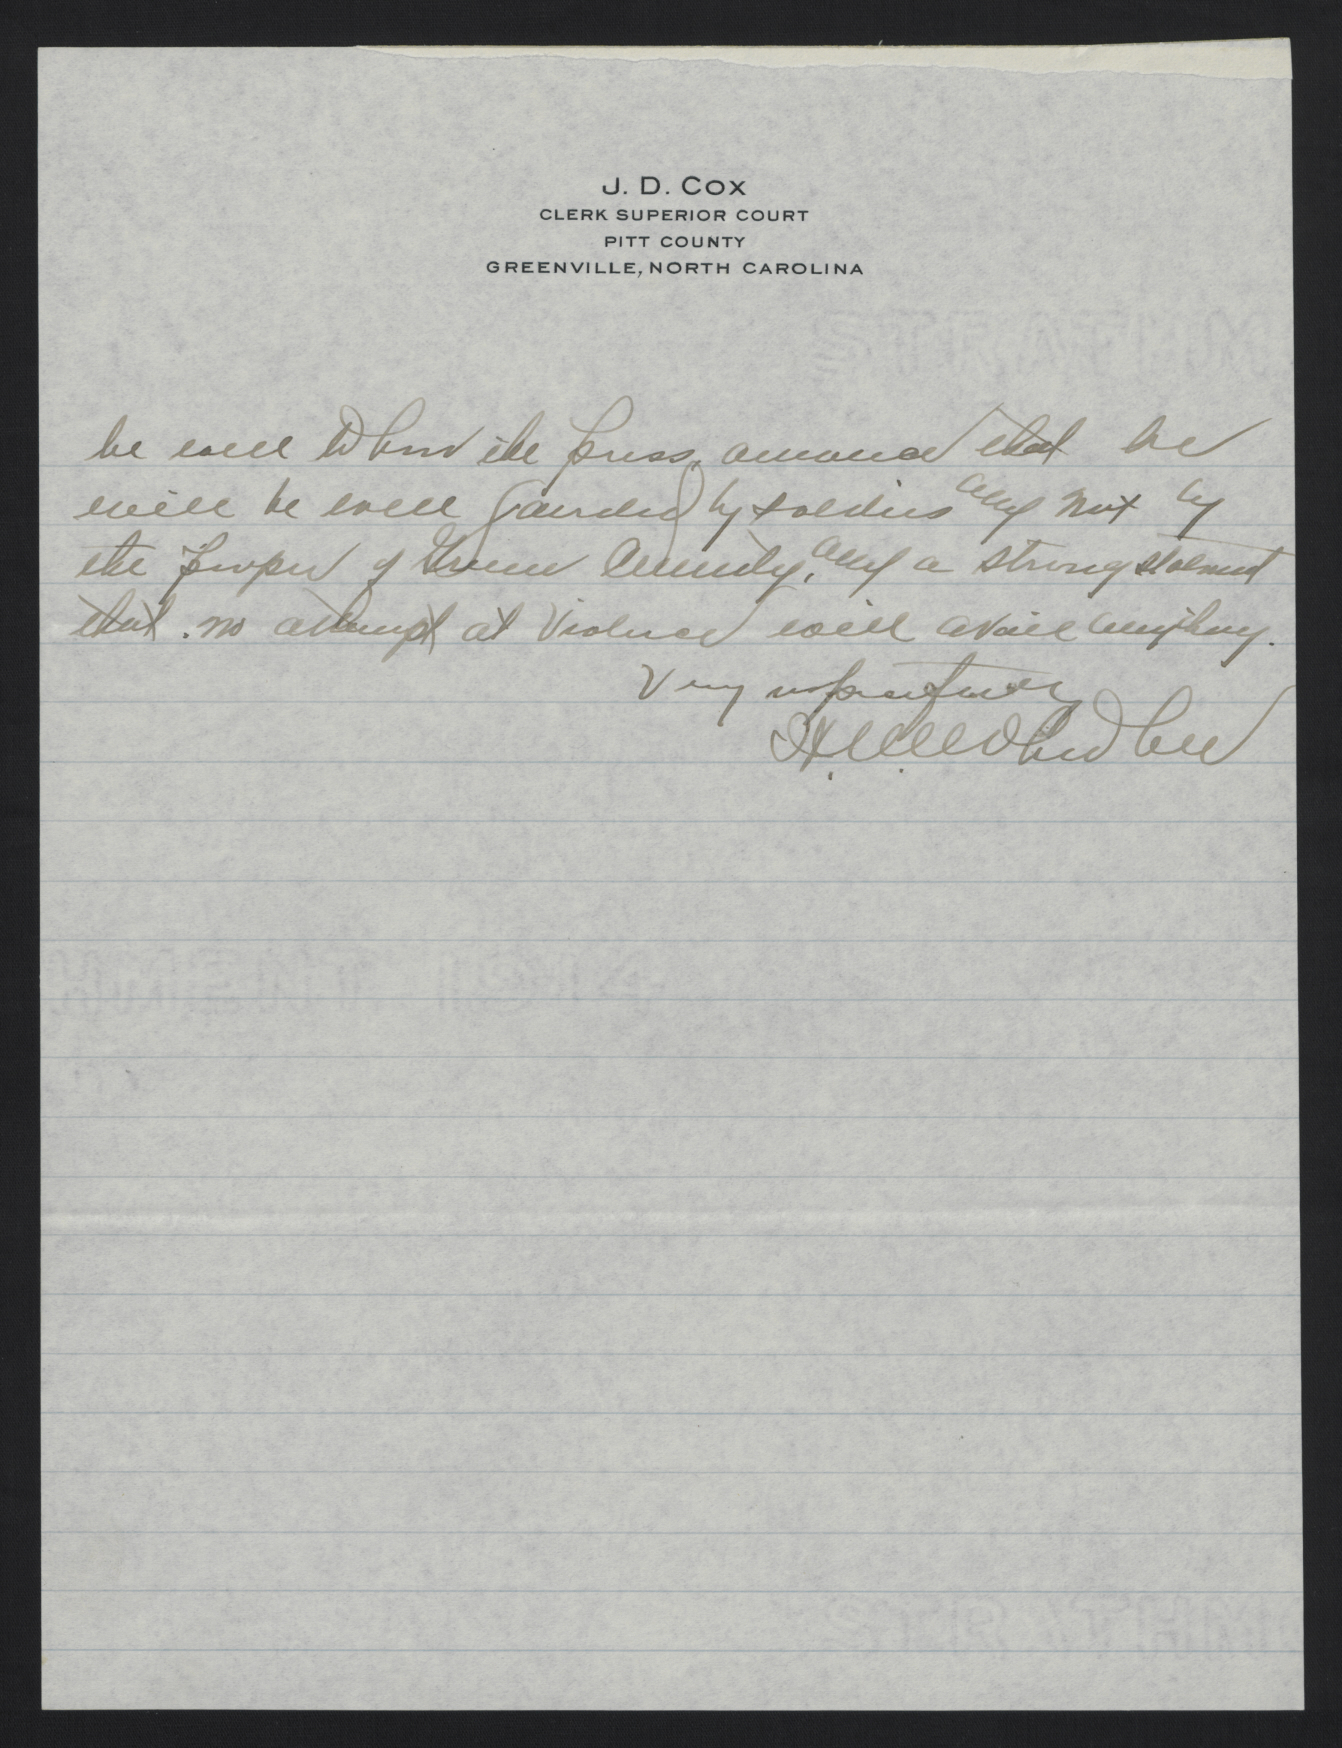 J. D. COX
CLERK SUPERIOR COURT
PITT COUNTY
GREENVILLE, NORTH CAROLINA
be well to have the press announce that he
will be well guarded by soldiers and not by
the people of Greene County, and a strong statement
that no attempt at violence will avail anything.
Very respectfully